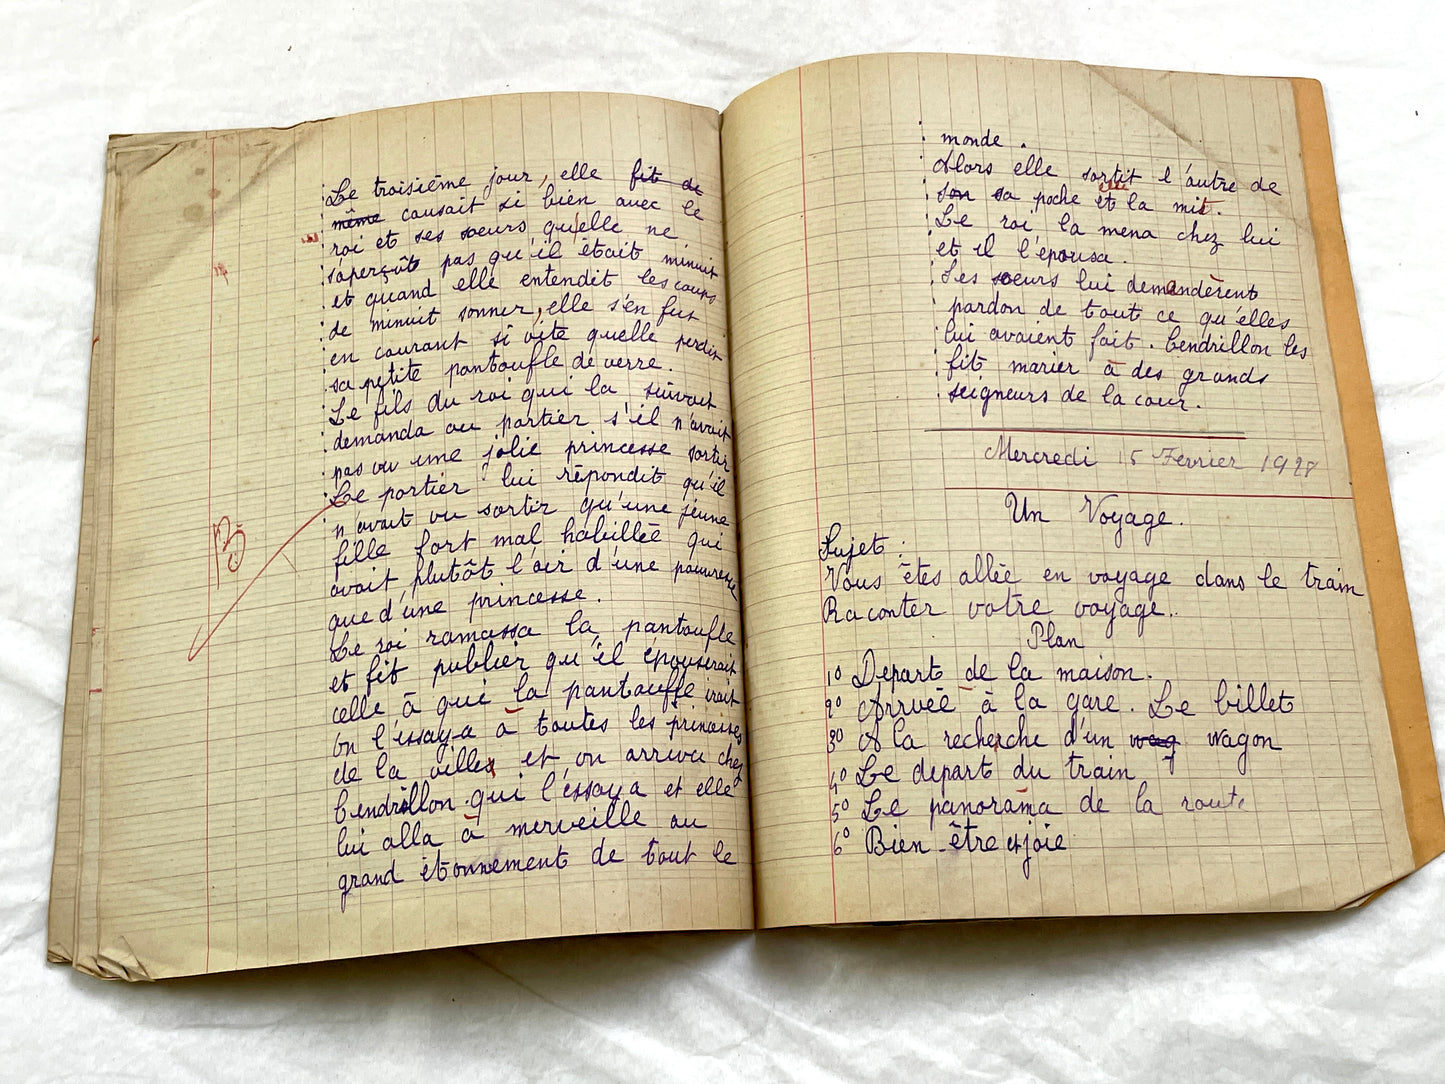 Le troisième jour, elle fit de
même causait si bien avec le
roi et ses soeurs qu'elle ne
s'aperçût pas qu'il était minuit
et quand elle entendit les coups
de minuit sonner, elle s'en fut
en courant si vite quelle perdit
sa petite pantoufle de verre.
Le fils du roi qui la suivait
demanda au portier s'il n'avait
pas vu une jolie princesse sortir
Le portier lui répondit qu'il
n'avait vu sortir qu'une jeune
fille fort mal habillée qui
avait plutôt l'air d'une pauvresse
que d'une princesse.
Le roi ramassa la pantoufle
et fit publier qu'il épouserait
celle à qui la pantouffe irait
on l'essaya à toutes les princesses
de la villes et on arriva chez
Cendrillon qui l'éssaya et elle
lui alla à merveille au
grand étonnement de tout le
B
monde.
Alors elle sortit l'autre de
son sa poche et elle la mit.
Le roi la mena chez lui
et il l'épousa.
Ses soeurs lui demandèrent
pardon de tout ce qu'elles
lui avaient fait. Cendrillon les
fit marier à des grands
seigneurs de la cour.
Mercredi 15 Fevrier 1928
Un Voyage.
Sujet :
Vous êtes allée en voyage dans le train
Raconter votre voyage.
Plan
1° Depart de la maison.
2° Arrivée à la gare. Le billet
3° A la recherche d'un wag wagon
4° Le depart du train
5° Le panorama de la route
6° Bien-être et joie